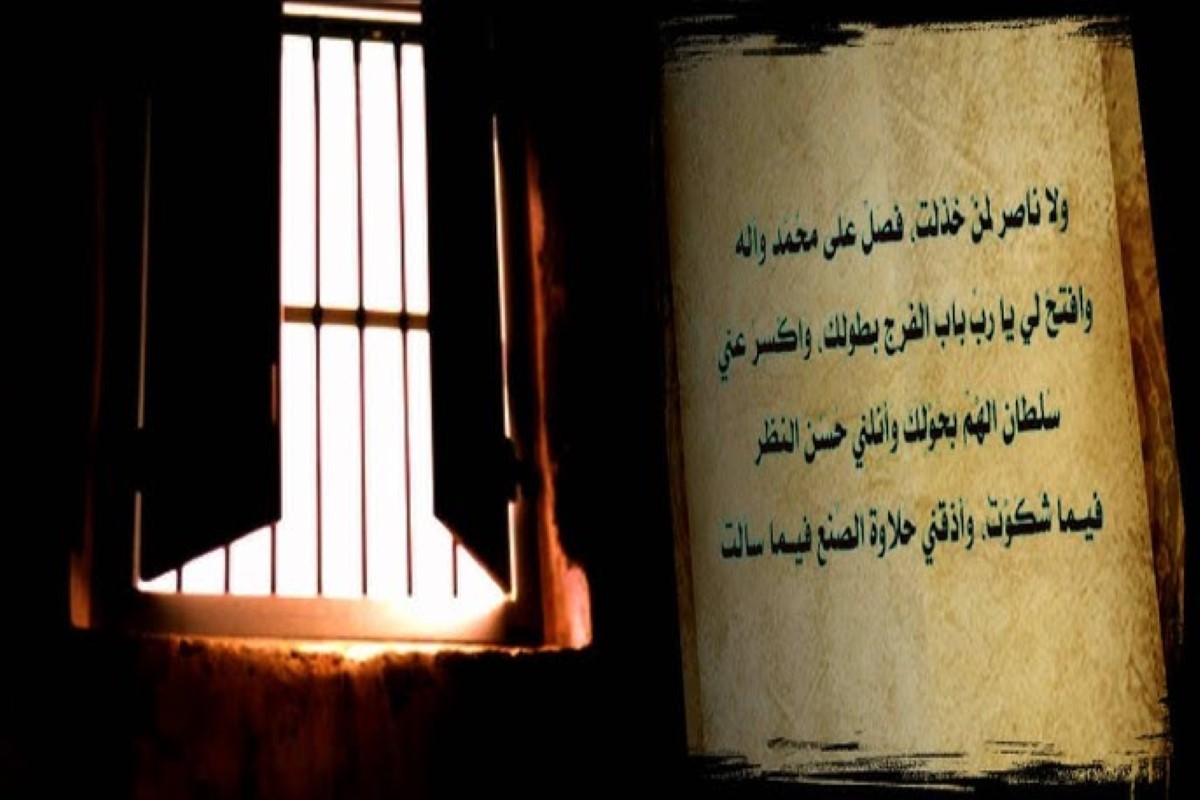 ولا ناصر لمنْ خذلت، فصلّ على محُمّد واله
وافتحْ لي يا ربّ باب الفرج بطولك، واكسرْ عني
سلطان الهْمّ بحوْلك وأنلني حُسن النظر
فيما شكوْتُ، وأذقني حلاوة الصّنع فيما سالت